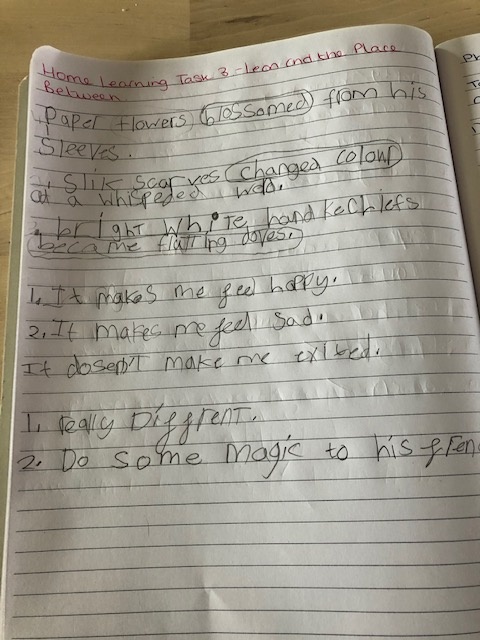 Home Learning Task 3 - Leon and the Place
Between
Paper flowers blossomed from his
Sleeves.
1. Slik scarves changed colour
at a whispeded wod.
2. bright white handkechiefs
became flutting doves.
1. It makes me feel happy.
2. It makes me feel sad.
It dosen't make me exibed.
1. really Diffrent.
2. Do some magic to his
Ph